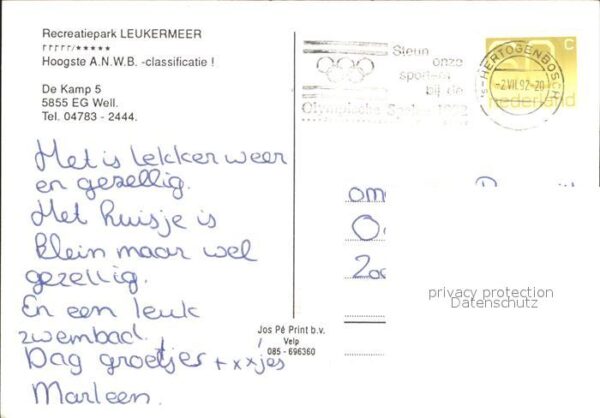 Recreatiepark LEUKERMEER
ꜛꜛꜛꜛꜛ/★★★★★
Hoogste A.N.W.B. -classificatie !
De Kamp 5
5855 EG Well.
Tel. 04783 - 2444.
Steun
onze
sporters
bij de
Olympische Spelen 1992
's-HERTOGENBOSCH
-2.VII.92-20
C
nederland
Het is lekker weer
en gezellig.
Het huisje is
klein maar wel
gezellig.
En een leuk
zwembad.
Dag groetjes + xxxjes
Marleen.
Jos Pé Print b.v.
Velp
085 - 696360
privacy protection
Datenschutz